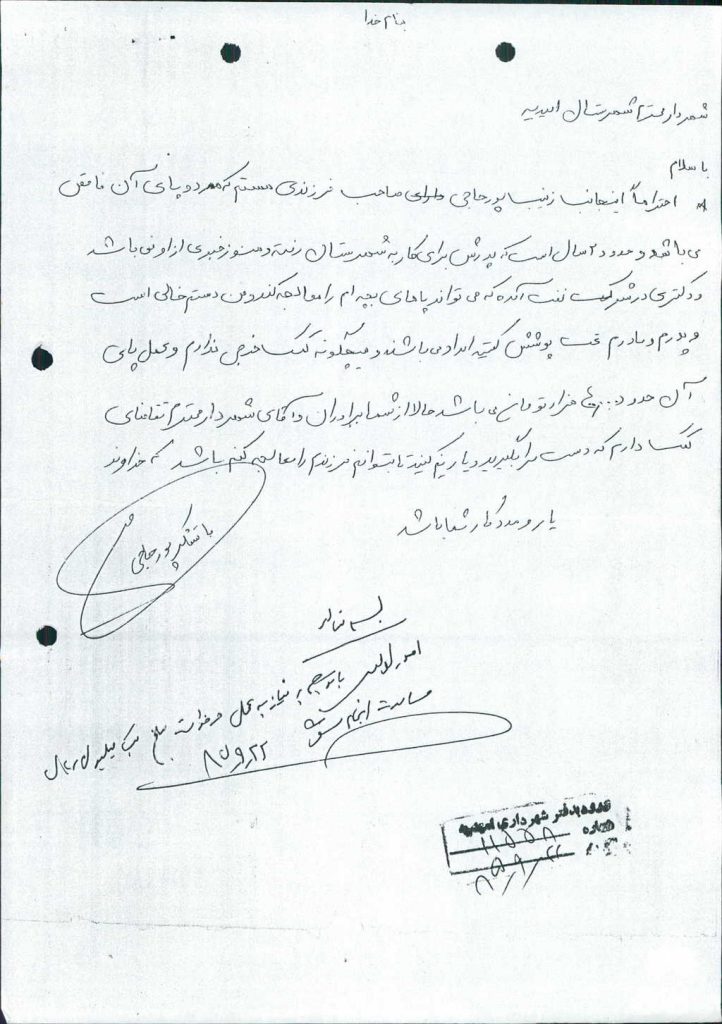 بنام خدا
شهردار محترم شهرستان امیدیه
با سلام
احتراماً اینجانب زینب پورحاجی دارای صاحب فرزندی هستم که هر دو پای آن ناقص
می باشد و حدود ۲ سال است که پدرش برای کار به شهرستان رفته و هنوز خبری از او نمی باشد
و دکتری در شرکت نفت آمده که می تواند پاهای بچه ام را معالجه کند و من دستم خالی است
و پدرم و مادرم تحت پوشش کمیته امداد می باشند و هیچگونه کمک خرجی ندارم و عمل پای
آن حدود هزار تومان می باشد حالا از شما برادران و آقای شهردار محترم تقاضای
کمک دارم که دست مرا بگیرید و یاریم کنید تا بتوانم فرزندم را معالجه کنم باشد که خداوند
یار و مددکار شما باشد
با تشکر پورحاجی
بسمه تعالی
امور مالی
با توجه به نیاز به عمل درخواست مبلغ یک میلیون ریال
مساعدت انجام شود ۸۵/۹/۲۲
ورود به دفتر شهرداری امیدیه
شماره ۱۱۵۵۸
۸۵/۹/۲۲